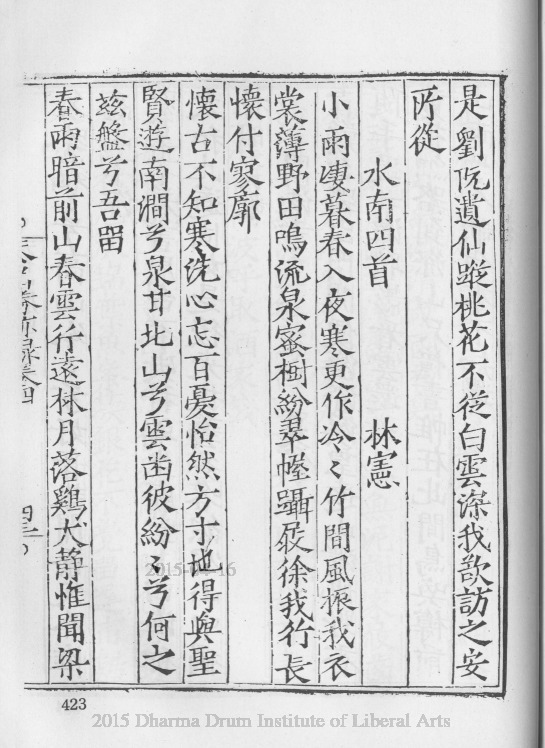 是劉阮遺仙蹤桃花不從白雲深我欲訪之安
所從
水南四首 林憲
小雨淒暮春入夜寒更作冷〻竹間風振我衣
裳薄野田鳴流泉蜜樹紛翠幄躡屐徐我行長
懷付寥廓
懷古不知寒洗心忘百憂怡然方寸地得與聖
賢遊南澗兮泉甘北山兮雲幽彼紛〻兮何之
茲盤兮吾留
春雨暗前山春雲行遠林月落鷄犬静惟聞梁
423
2015-04-16
2015 Dharma Drum Institute of Liberal Arts